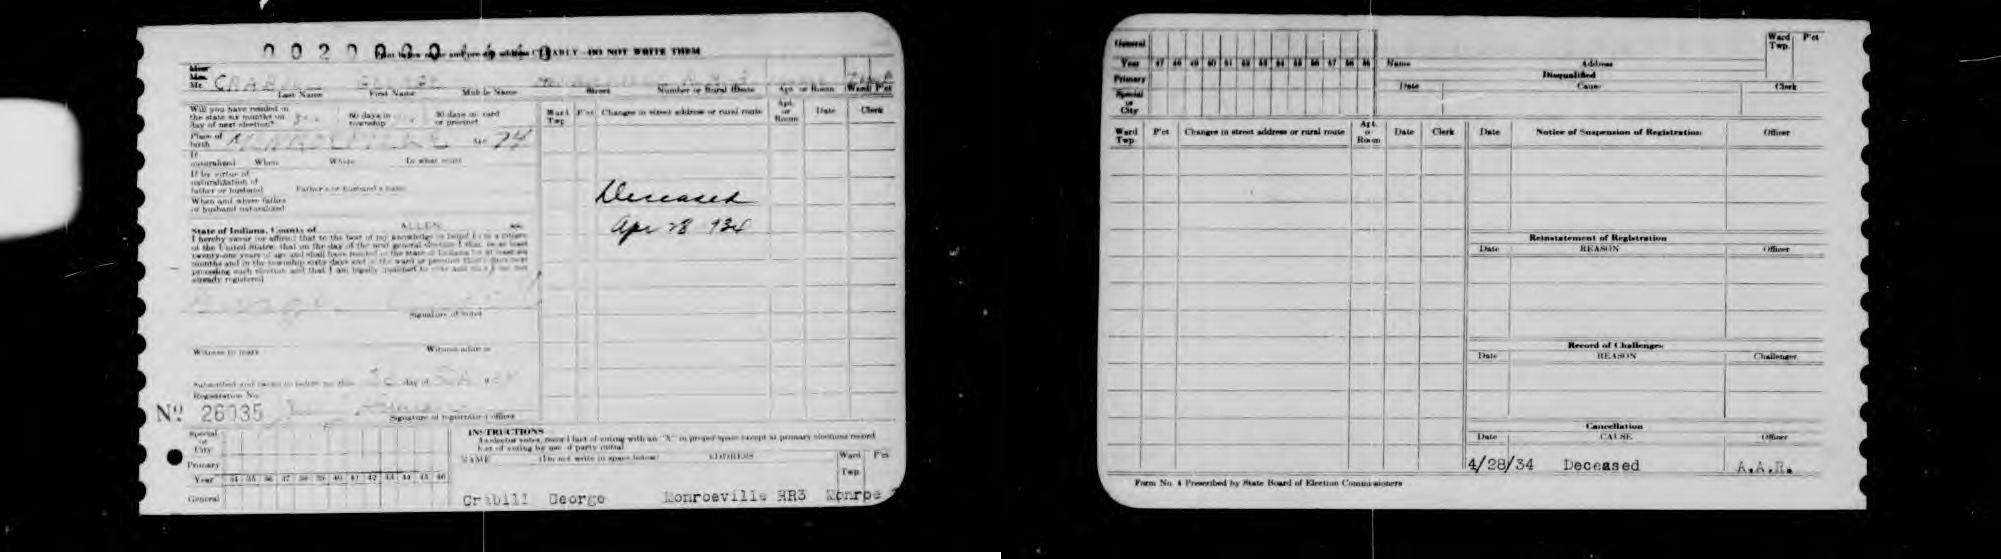 CLEARLY DO NOT WRITE THEM
Miss
Mrs.
Mr.
Last Name First Name Middle Name Street Number or Rural Route Apt. or Room Ward Pct
Will you have resided in the state six months on day of next election? 60 days in township 30 days in ward or precinct
Place of birth Age 74
If naturalized When Where In what court
If by virtue of naturalization of father or husband Father's or husband's name
When and where father or husband naturalized
Ward Twp. P'ct Changes in street address or rural route Apt. or Room Date Clerk
Deceased
Apr 28 934
State of Indiana, County of ALLEN
I hereby swear (or affirm) that to the best of my knowledge or belief I am a citizen
of the United States; that on the day of the next general election I shall be at least
twenty-one years of age and shall have resided in the state of Indiana for at least six
months and in the township sixty days and in the ward or precinct thirty days next
preceding such election and that I am legally qualified to vote and that I am not
already registered.
Signature of voter
Witness to mark Witness address
Subscribed and sworn to before me this day of
Registration No.
No 26035
Signature of registration officer
Special or City
Primary
Year 34 35 36 37 38 39 40 41 42 43 44 45 46
General
INSTRUCTIONS
As elector votes, record fact of voting with an "X" in proper space except at primary elections record
fact of voting by use of party initial
NAME (Do not write in space below) ADDRESS Ward Twp. P'ct
Crabill George Monroeville RR3 Monroe
General
Year 47 48 49 50 51 52 53 54 55 56 57 58 59
Primary
Special or City
Name Address Ward Twp. P'ct
Disqualified
Date Cause Clerk
Ward Twp. P'ct Changes in street address or rural route Apt. or Room Date Clerk
Date Notice of Suspension of Registration Officer
Reinstatement of Registration
Date REASON Officer
Record of Challenges
Date REASON Challenger
Cancellation
Date CAUSE Officer
4/28/34 Deceased A.A.R.
Form No. 4 Prescribed by State Board of Election Commissioners